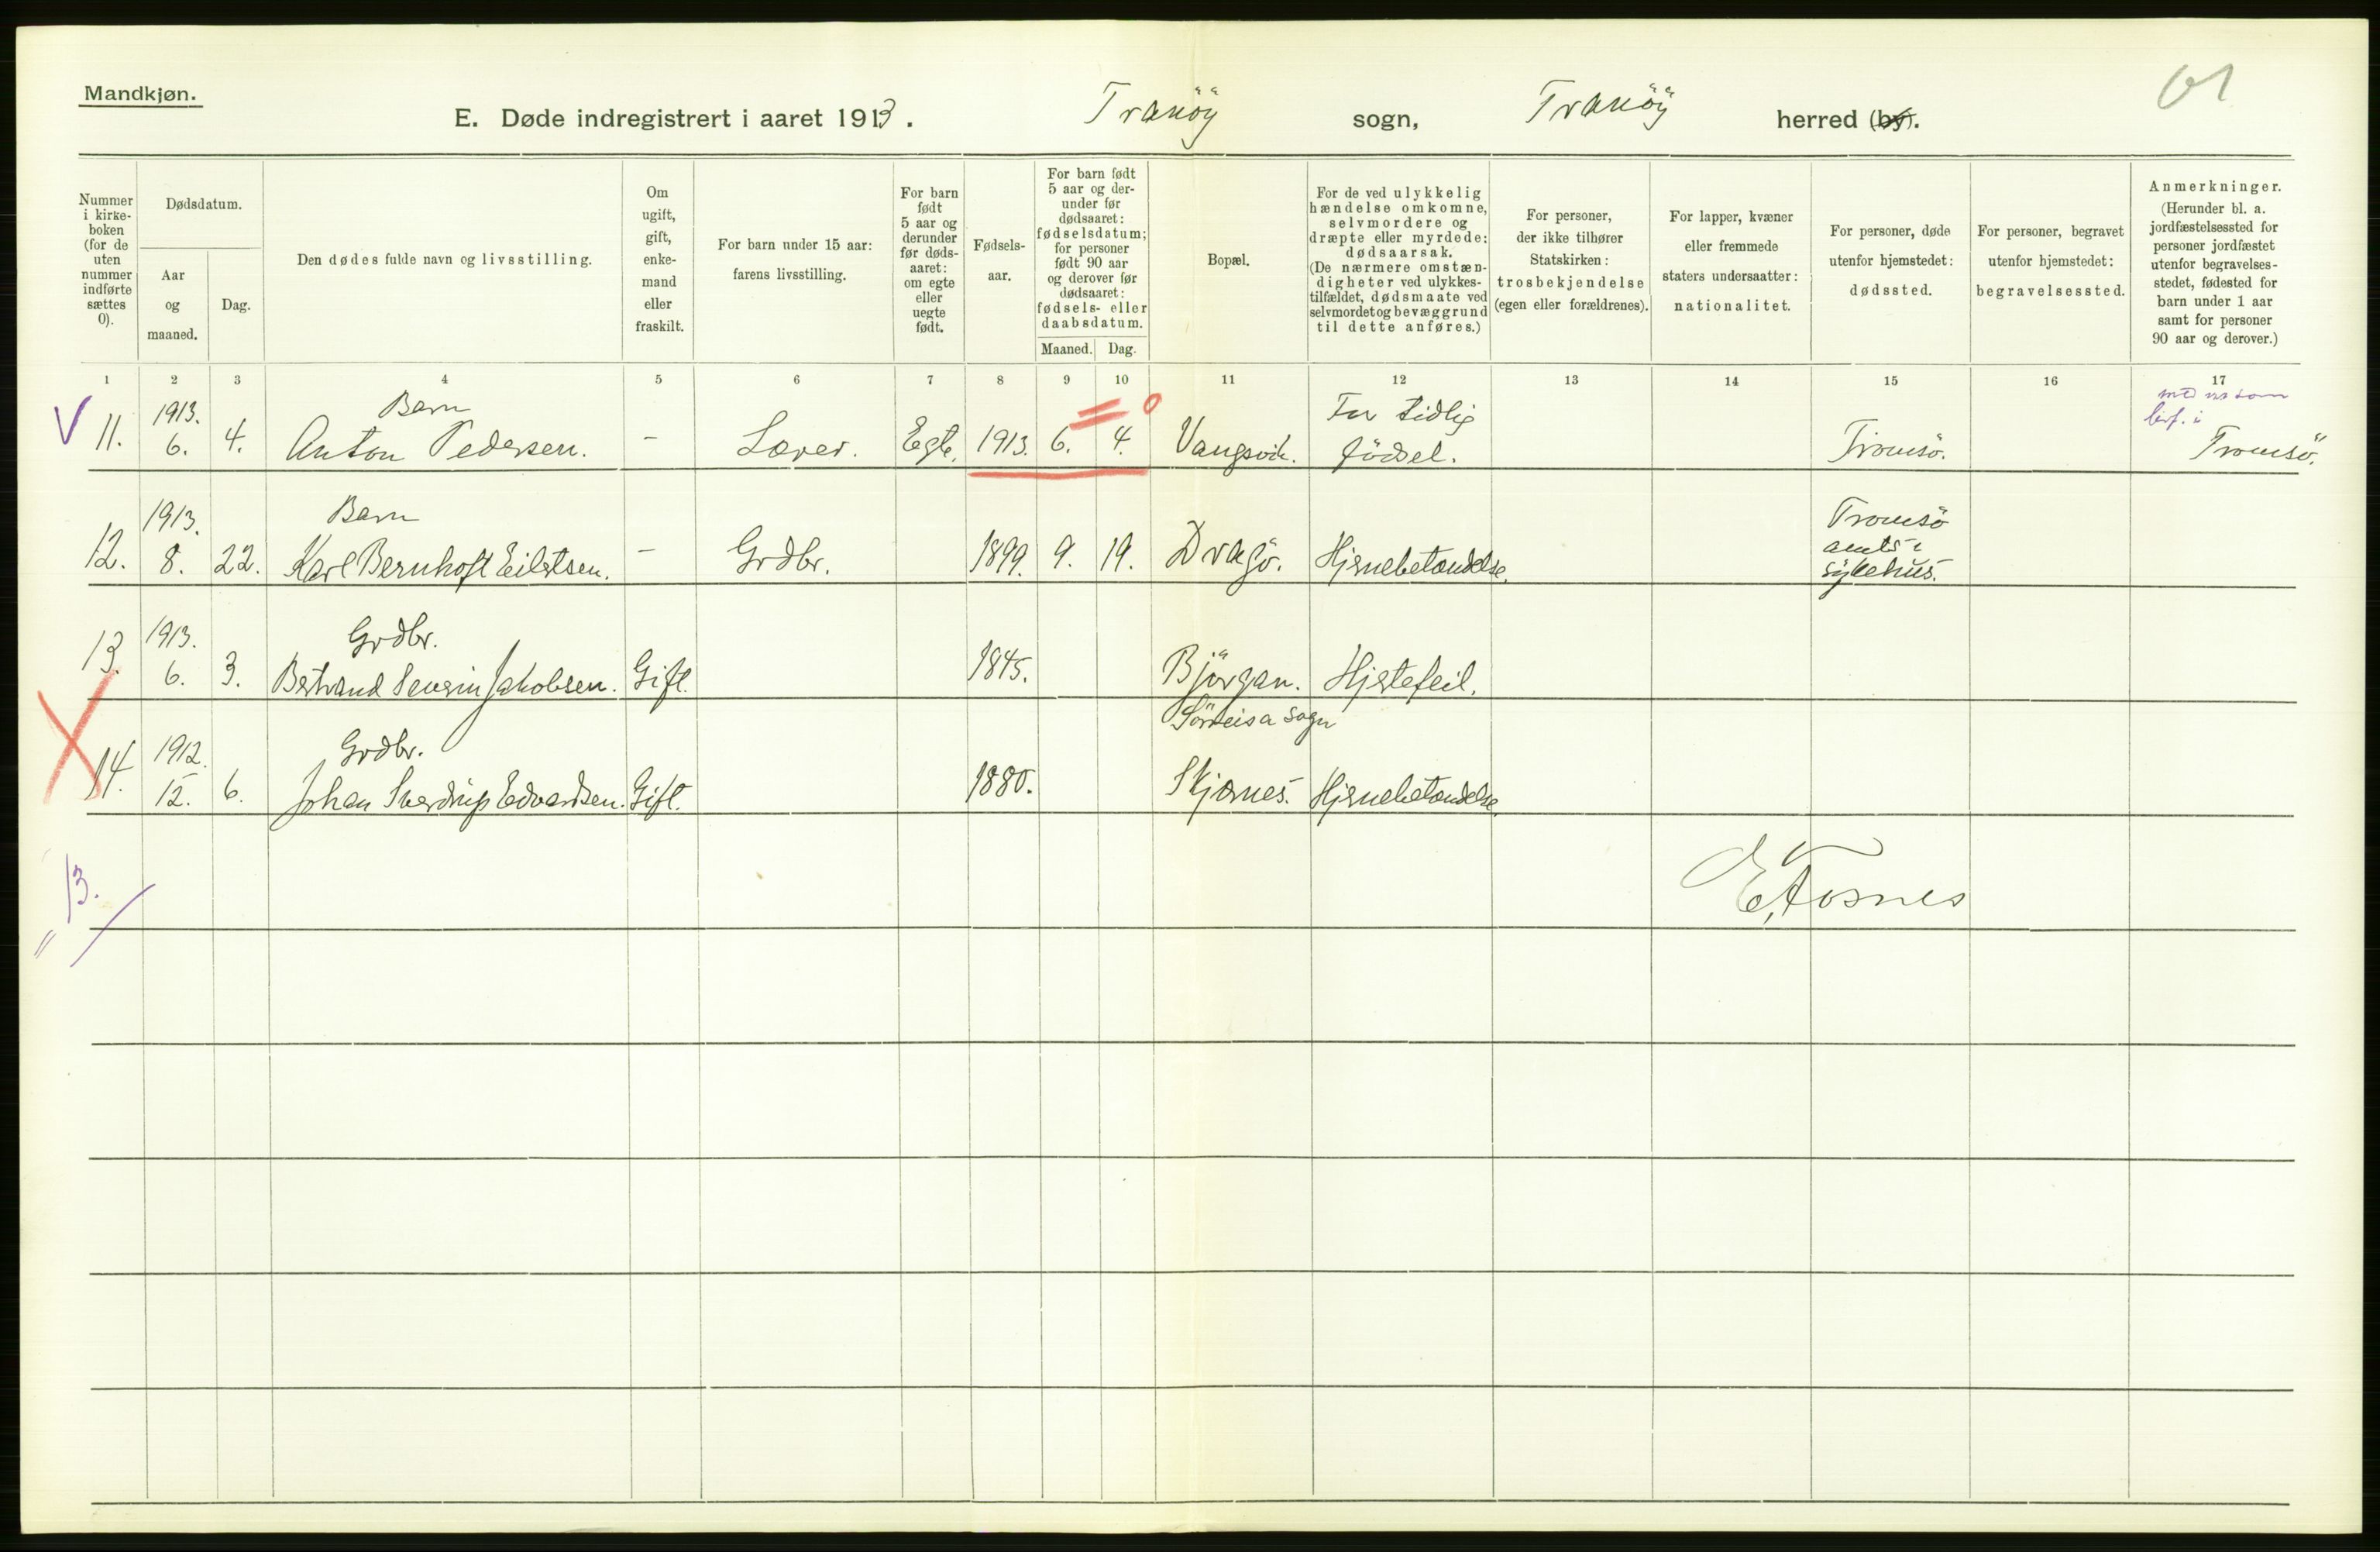 Mandkjøn.
E. Døde indregistrert i aaret 1913. Tranöy sogn, Tranöy herred (by).
Nummer i kirkeboken (for de uten nummer indførte sættes 0).
Dødsdatum.
Aar og maaned.
Dag.
Den dødes fulde navn og livsstilling.
Om ugift, gift, enkemand eller fraskilt.
For barn under 15 aar: farens livsstilling.
For barn født 5 aar og derunder før dødsaaret: om egte eller uegte født.
Fødselsaar.
For barn født 5 aar og derunder før dødsaaret: fødselsdatum; for personer født 90 aar og derover før dødsaaret: fødsels- eller daabsdatum.
Maaned. Dag.
Bopæl.
For de ved ulykkelig hændelse omkomne, selvmordere og dræpte eller myrdede: dødsaarsak. (De nærmere omstændigheter ved ulykkestilfældet, dødsmaate ved selvmordet og bevæggrund til dette anføres.)
For personer, der ikke tilhører Statskirken: trosbekjendelse (egen eller forældrenes).
For lapper, kvæner eller fremmede staters undersaatter: nationalitet.
For personer, døde utenfor hjemstedet: dødssted.
For personer, begravet utenfor hjemstedet: begravelsessted.
Anmerkninger. (Herunder bl. a. jordfæstelsessted for personer jordfæstet utenfor begravelsesstedet, fødested for barn under 1 aar samt for personer 90 aar og derover.)
1 2 3 4 5 6 7 8 9 10 11 12 13 14 15 16 17
V 11. 1913. 6. 4. Barn Anton Pedersen. - Lærer. Egte. 1913. 6. 4. Vangsvik. For tidlig födsel. Tromsö. Tromsö.
12. 1913. 8. 22. Barn Karl Bernhoft Eilertsen. - Grdbr. 1899. 9. 19. Dragö. Hjernebetændelse. Tromsö amts sykehus.
13. 1913. 6. 3. Grdbr. Bertrand Severin Jakobsen. Gift. 1845. Björgan. Hjertefeil.
Sörreisa sogn
14. 1912. 12. 6. Grdbr. Johan Sverdrup Edvardsen. Gift. 1880. Skjærnes. Hjernebetændelse.
13.
E. Fosnes